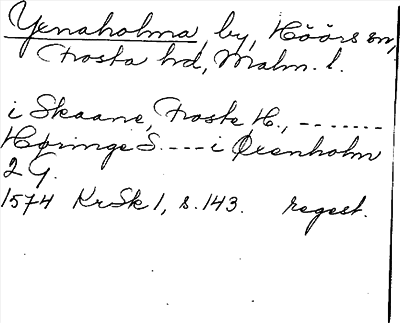 Yxnaholma, by, Höörs sn,
Frosta hd, Malm. l.
i Skaane, Froste H., -------
Høringe S. ---- i Øxenholm
2 G.
1574 KrSk 1, s. 143. regest.